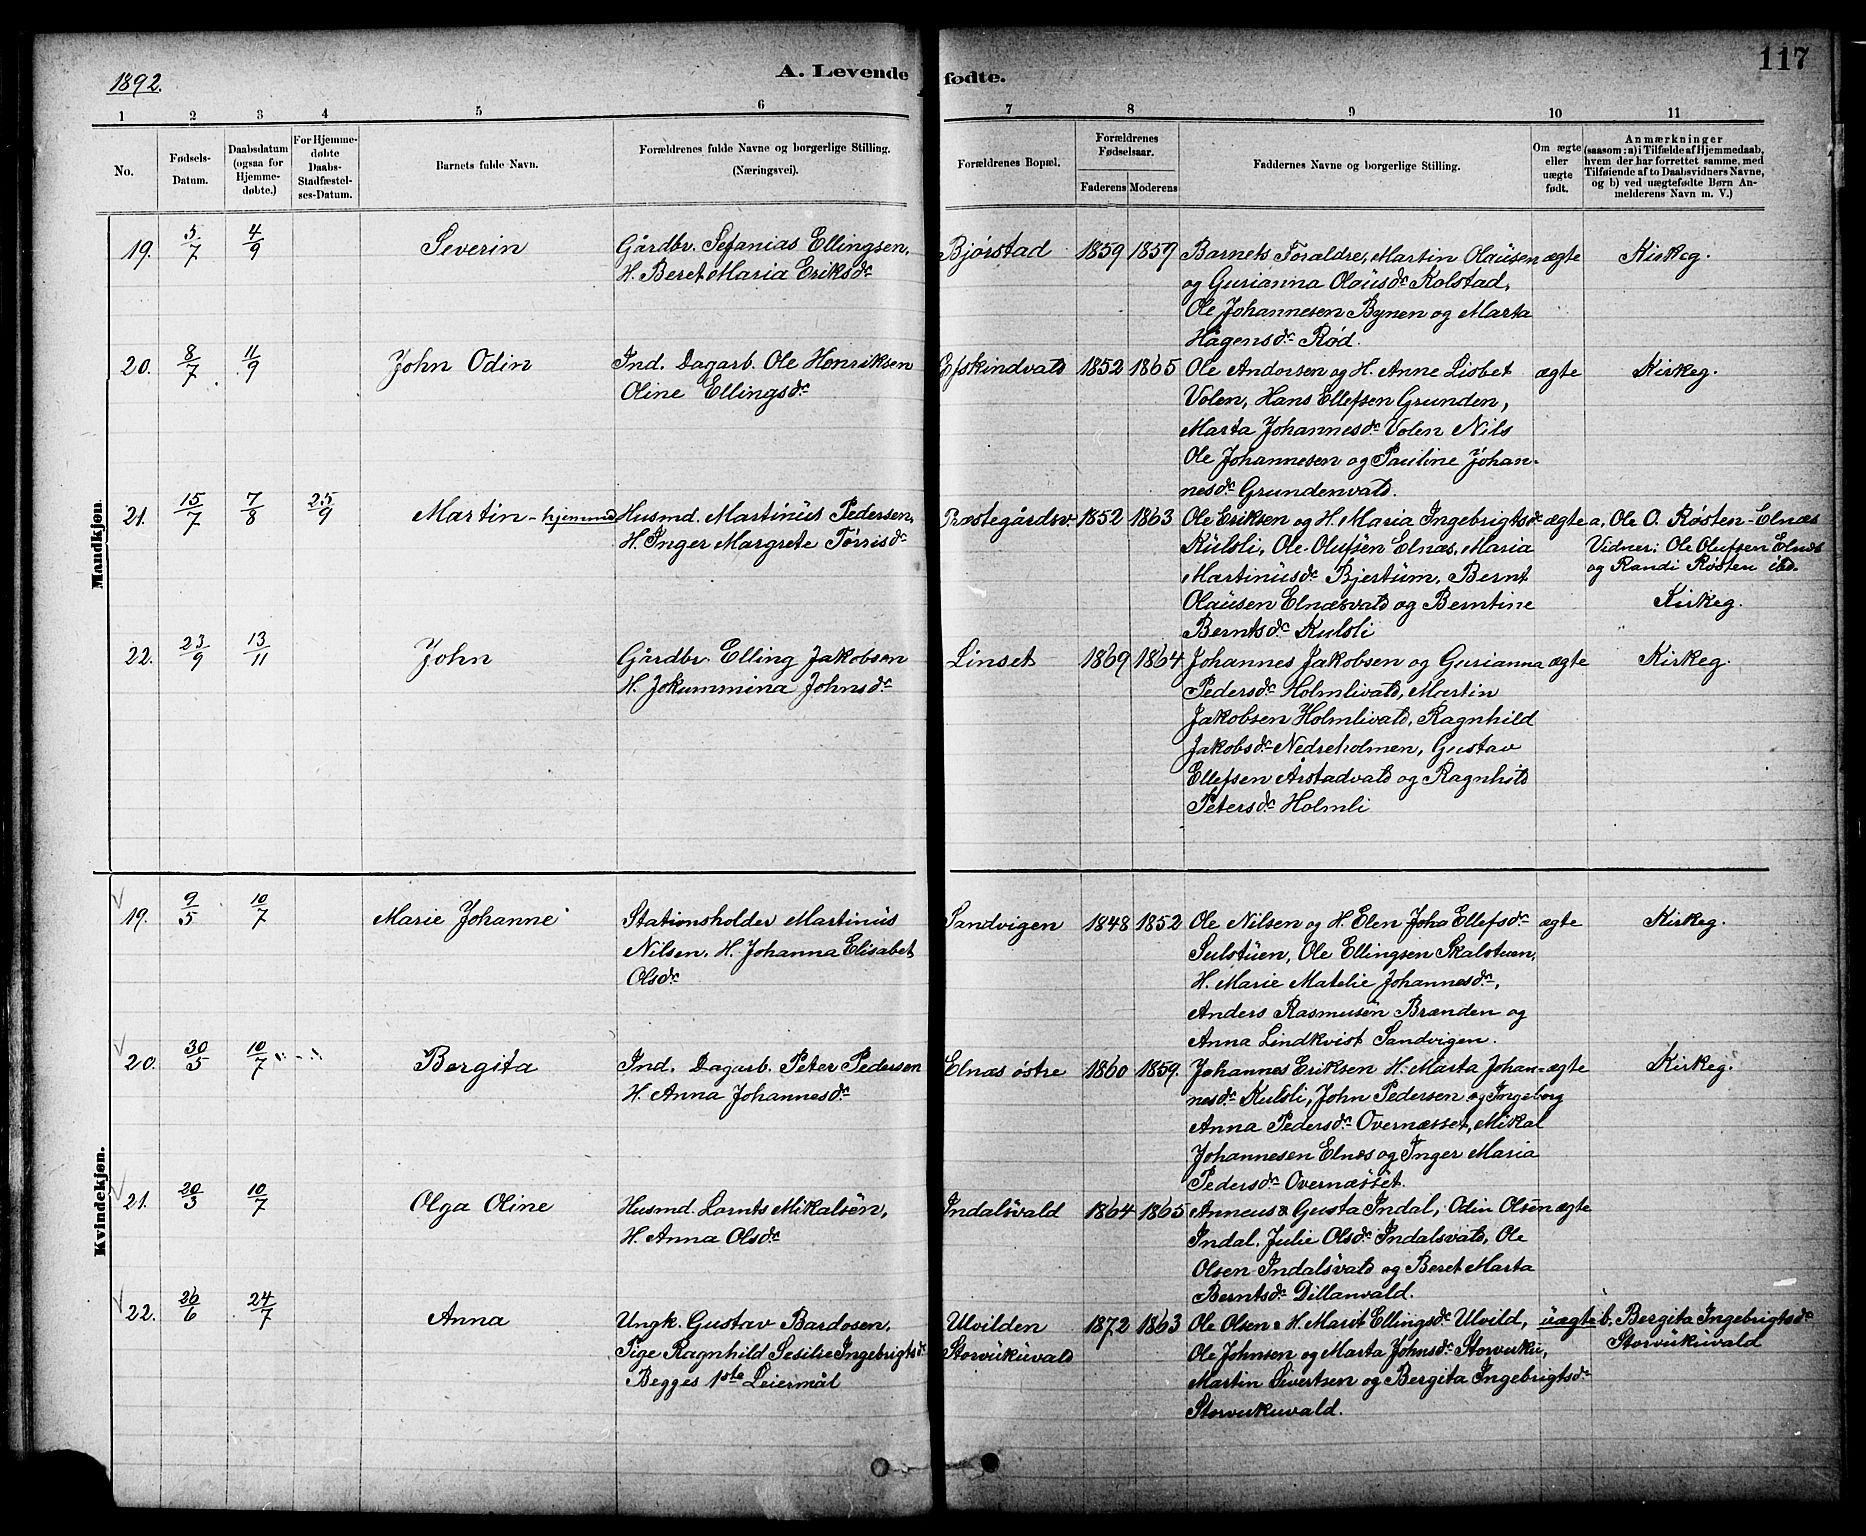 1892.
A. Levende fødte.
117
1 2 3 4 5 6 7 8 9 10 11
No.
Fødsels-Datum.
Daabsdatum (ogsaa for Hjemmedøbte.)
For Hjemmedøbte Daabs-Stadfæstelses-Datum.
Barnets fulde Navn.
Forældrenes fulde Navne og borgerlige Stilling.
(Næringsvei).
Forældrenes Bopæl.
Forældrenes Fødselsaar.
Faderens Moderens
Faddernes Navne og borgerlige Stilling.
Om ægte eller uægte født.
Anmærkninger
(saasom: a) i Tilfælde af Hjemmedaab,
hvem der har forrettet samme, med
Tilføiende af to Daabsvidners Navne,
og b) ved uægtefødte Børn Anmelderens Navn m. V.)
Mandkjøn
19. 5/7 4/9 Severin Gårdbr. Sefanias Ellingsen, Bjørstad 1859 1859 Barnets Forældre, Martin Olausen ægte Kirkeg.
H. Beret Maria Eriksdr og Gurianna Olausdr Kolstad,
Ole Johannesen Bynen og Marta
Hågensdr Rød.
20. 8/7 11/9 John Odin Ind. Dagarb. Ole Henriksen Efskindvald 1852 1865 Ole Andorsen og H. Anne Lisbet ægte Kirkeg.
Oline Ellingsdr Volen, Hans Ellefsen Grunden,
Marta Johannesdr Volen Nils
Ole Johannesen og Pauline Johan-
nesdr Grundenvald.
21. 15/7 7/8 25/9 Martin - hjemmed Husmd. Martinus Pedersen, Præstegårdsv. 1852 1863 Ole Eriksen og H. Maria Ingebrigtsdr ægte a, Ole O. Røsten-Elnæs
H. Inger Margrete Torrisdr Kulsli, Ole Olufsen Elnæs, Maria Vidner: Ole Olufsen Elnæs
Martinusdr Bjertum, Bernt og Randi Røsten ibd.
Olausen Elnæsvald og Berntine Kirkeg.
Berntsdr Kulsli
22. 23/9 13/11 John Gårdbr. Elling Jakobsen Linset 1869 1864 Johannes Jakobsen og Gurianna ægte Kirkeg.
H. Jokummina Johnsdr Pedersdr Holmlivald, Martin
Jakobsen Holmlivald, Ragnhild
Jakobsdr Nedreholmen, Gustav
Ellefsen Årstadvald og Ragnhild
Petersdr Holmli
Kvindekjøn.
19. 9/5 10/7 Marie Johanne Stationsholder Martinus Sandvigen 1848 1852 Ole Nilsen og H. Elen Joha Ellefsdr ægte Kirkeg.
Nilsen, H. Johanna Elisabet Sulstuen, Ole Ellingsen Skalstuen,
Olsdr H. Marie Matelie Johannesdr,
Anders Rasmusen Brænden og
Anna Lindkvist Sandvigen.
20. 30/5 10/7 Bergita Ind. Dagarb. Peter Pedersen Elnæs østre 1860 1859. Johannes Eriksen H. Marta Johan- ægte Kirkeg.
H. Anna Johannesdr nesdr Kulsli, John Pedersen og Ingeborg
Anna Pedersdr Overnæsset, Mikal
Johannesen Elnæs og Inger Maria
Pedersdr Overnæsset.
21. 20/3 10/7 Olga Oline Husmd. Lornts Mikalsen, Indalsvald 1864 1865 Anneus & Gusta Indal, Odin Olsen ægte
H. Anna Olsdr Indal, Julie Olsdr Indalsvald, Ole
Olsen Indalsvald og Beret Marta
Berntsdr Dillanvald.
22. 26/6 24/7 Anna Ungk. Gustav Bardosen, Ulvilden 1872 1863 Ole Olsen & H. Marit Ellingsdr Ulvild, uægte b, Bergita Ingebrigtsdr
Pige Ragnhild Sesilie Ingebrigtsdr Storvukuvald Ole Johnsen og Marta Johnsdr Storvuku, Storvukuvald
Begges 1ste Leiermål Martin Sivertsen og Bergita Ingebrigtsdr
Storvukuvald.